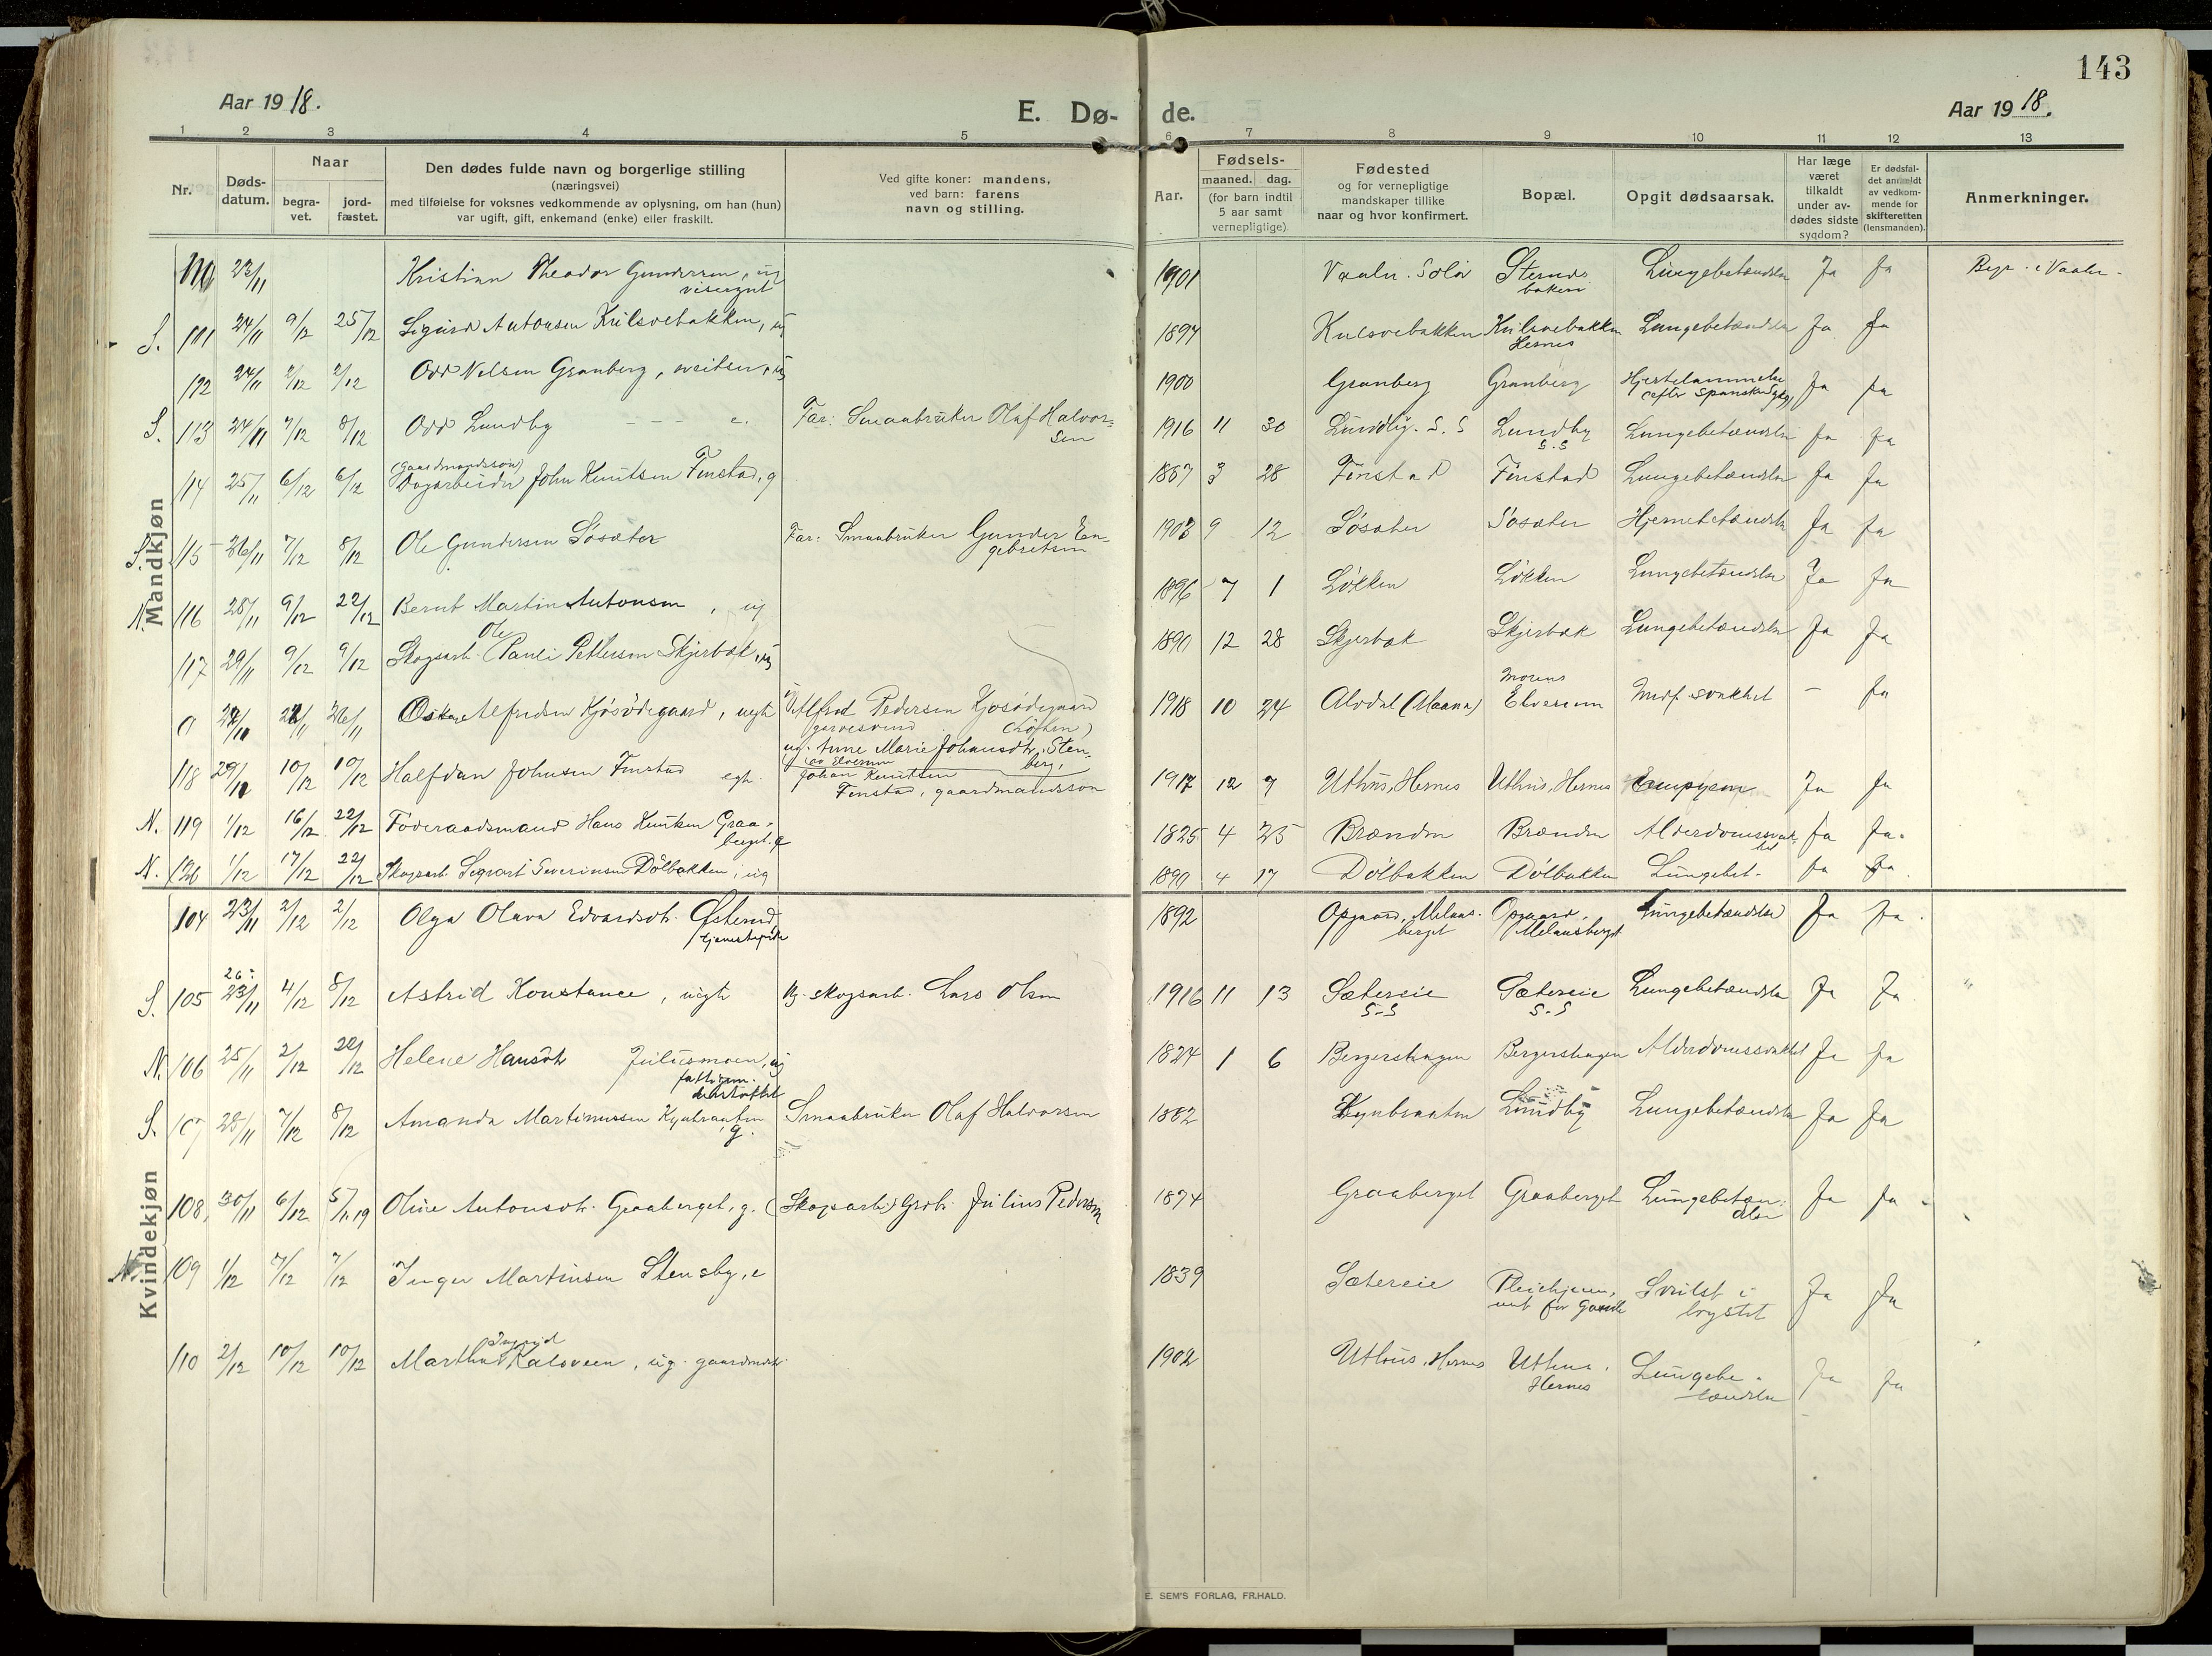 143
Aar 1918.
E. Dø- de.
Aar 1918.
1 2 3 4 5 6 7 8 9 10 11 12 13
Nr.
Døds-
datum.
Naar
begra-
vet.
jord-
fæstet.
Den dødes fulde navn og borgerlige stilling
(næringsvei)
med tilføielse for voksnes vedkommende av oplysning, om han (hun)
var ugift, gift, enkemand (enke) eller fraskilt.
Ved gifte koner: mandens,
ved barn: farens
navn og stilling.
Aar.
Fødsels-
maaned. dag.
(for barn indtil
5 aar samt
vernepligtige)
Fødested
og for vernepligtige
mandskaper tillike
naar og hvor konfirmert.
Bopæl.
Opgit dødsaarsak.
Har læge
været
tilkaldt
under av-
dødes sidste
sygdom?
Er dødsfal-
det anmeldt
av vedkom-
mende for
skifteretten
(lensmanden).
Anmerkninger.
Mandkjøn
110 23/11 Kristian Theodor Gundersen, ug 1901 Vaaler. Solør Lungebetændelse Ja Ja Begr. i Vaaler.
visergut
S. 111 24/11 9/12 25/12 Sigurd Antonsen Kulsvebakken, ug 1894 Kulsvebakken Kulsvebakken Lungebetændelse Ja Ja
Hernes
112 24/11 2/12 2/12 Odd Nilsen Granberg, ug 1900 Granberg Granberg Ja Ja
S. 113 24/11 7/12 8/12 Odd Lundby Far: Smaabruker Olaf Halvor-
sen 1916 11 30 Lundby. S.S Lundby Lungebetændelse Ja Ja
S.S
(Gaardmandssøn)
114 25/11 6/12 6/12 Dagarbeider John Knutsen Finstad, g 1887 3 28 Finstad Finstad Lungebetændelse Ja Ja
S. 115 26/11 7/12 8/12 Ole Gundersen Søsæter Far: Smaabruker Gunder En-
gebretsen 1903 9 12 Søsæter Søsæter Hjernebetændelse Ja Ja
N. 116 28/11 9/12 22/12 Bernt Martin Antonsen, ug 1896 7 1 Løkken Løkken Lungebetændelse Ja Ja
Ole
117 29/11 9/12 9/12 Skogsarb. Pauli Pettersen Skjerbæk, ug 1890 12 28 Skjerbæk Skjerbæk Lungebetændelse Ja Ja
0 Oskar Alfredsen Kjøsødegaard, uegte Alfred Pedersen Kjøsødegaard
(Løiten)
ug. Anne Marie Johansdtr. Sten-
berg, 1918 10 24 Alvdal Morens
Elverum svakhet - Ja
118 10/12 10/12 Halfdan Johnsen Finstad egte. Johan Knutsen
Finstad, gaardmandssøn 1917 12 7 Uthus, Hernes Uthus, Hernes Empyem Ja Ja
N. 119 1/12 16/12 22/12 Føderaadsmand Hans Knutsen Graa-
berget. 1825 4 25 Brænden Brænden Alderdomssvak-
het Ja Ja.
N. 120 1/12 17/12 22/12 Skogsarb. Sigvart Severinsen Dølbakken, ug 1890 4 17 Dølbakken Dølbakken Lungebet. Ja Ja
Kvindekjøn
104 23/11 2/12 2/12 Olga Olava Edvardsdtr. Østerud
tjenestepike 1892 Opgaard, Melaas-
berget Opgaard,
Melaasberget Lungebetændelse Ja Ja.
S. 105 26: 23/11 4/12 8/12 Astrid Konstance, uegte Ug. skogsarb. Lars Olsen 1916 11 13 Sætereie Sætereie Lungebetændelse Ja Ja
S-S S-S
N. 106 25/11 2/12 22/12 Helene Hansdtr Juliusmoen, ug
1824 1 6 Bergershagen Bergershagen Alderdomssvakhet Ja Ja
S. 107 28/11 7/12 8/12 Amanda Martinussen Kynbraaten
g. Smaabruker Olaf Halvorsen 1882 Kynbraaten Lundby Lungebetændelse Ja Ja
108 30/11 6/12 5/1 19 Oline Antonsdtr. Graaberget, g. (Skogsarb.) Grbr. Julius Pedersen 1874 Graaberget Graaberget Lungebetæn-
delse Ja Ja
N. 109 1/12 7/12 7/12 Inger Martinsen Stensby, e 1839 Sætereie Pleiehjem,
Svulst i
brystet Ja Ja
Ingrid
110 2/12 10/12 10/12 Martha Kalsveen, ug. gaardmdtr. 1902 Uthus, Hernes Uthus,
Hernes Lungebe-
tændelse Ja Ja
E. SEM'S FORLAG, FR.HALD.